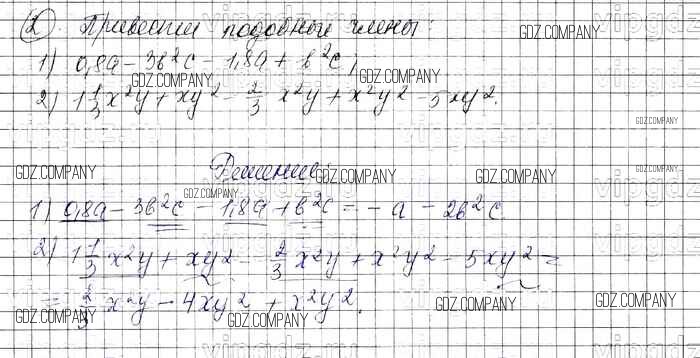 ② Привести подобные члены:
1) 0,8a - 3b²c - 1,8a + b²c;
2) 1 1/3 x²y + xy² - 2/3 x²y + x²y² - 5xy².
Решение:
1) 0,8a - 3b²c - 1,8a + b²c = - a - 2b²c
2) 1 1/3 x²y + xy² - 2/3 x²y + x²y² - 5xy² =
= 2/3 x²y - 4xy² + x²y².
GDZ.COMPANY
GDZ.COMPANY
GDZ.COMPANY
GDZ.COMPANY
GDZ.COMPANY
GDZ.COMPANY
GDZ.COMPANY
GDZ.COMPANY
GDZ.COMPANY
GDZ.COMPANY
GDZ.COMPANY
GDZ.COMPANY
GDZ.COMPANY